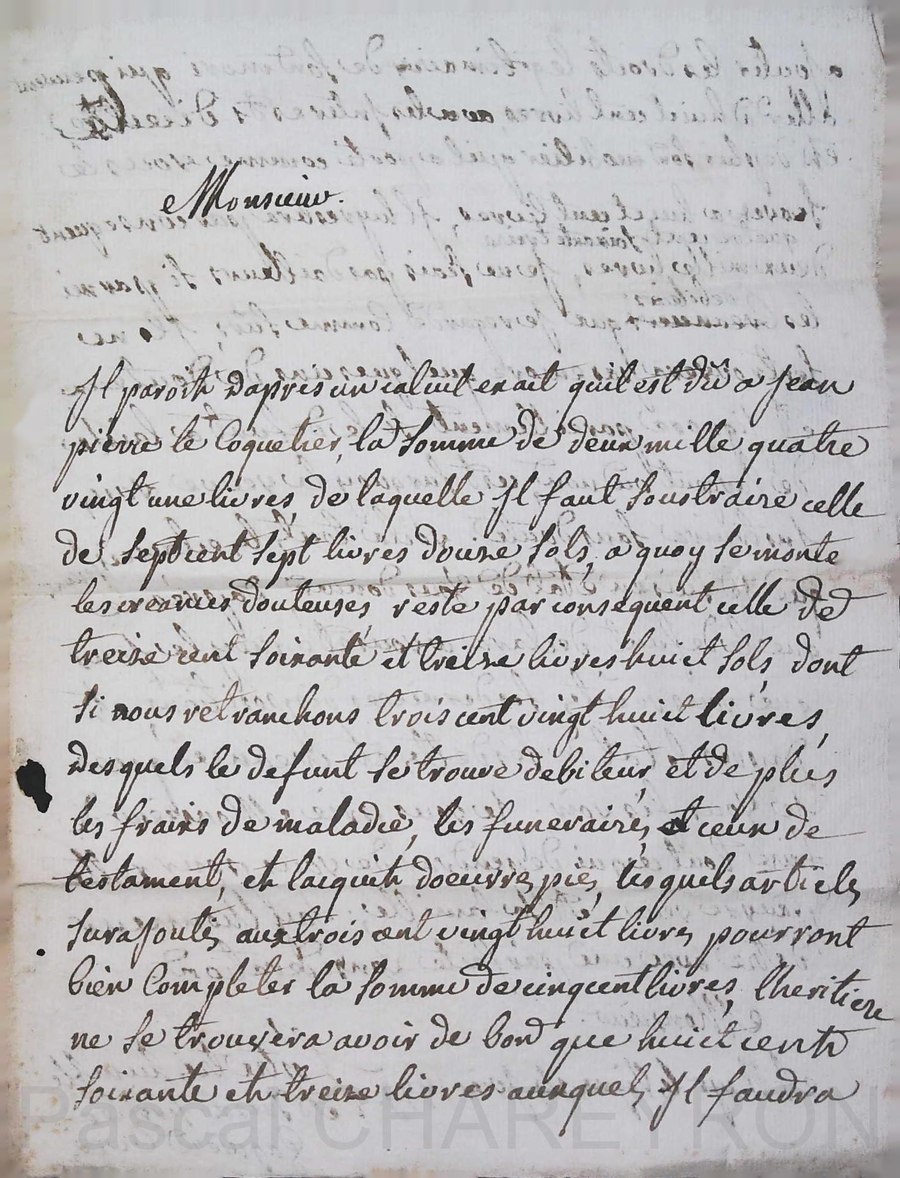 Monsieur.
Il paroit d'apres un calcul exait quil est dû a jean
pierre le Coquetier, la somme de deux mille quatre
vingt une livres, de laquelle Il faut soustraire celle
de sept cent sept livres douze sols, a quoy se monte
les creances douteuses, reste par consequent celle de
treize cent soixante et treize livres huict sols, dont
si nous retranchons trois cent vingt huict livres,
desquels le defunt se trouve debiteur, et de plus
les frairs de maladie, les funeraires, et ceux de
testament, et lacquit doeuvres pies, lesquels articles
surajoutés aux trois cent vingt huict livres pourront
bien completer la somme de cinq cent livres, lheritiere
ne se trouvera avoir de bon que huict cent
soixante et treize livres auxquels Il faudra
Pascal CHAREYRON